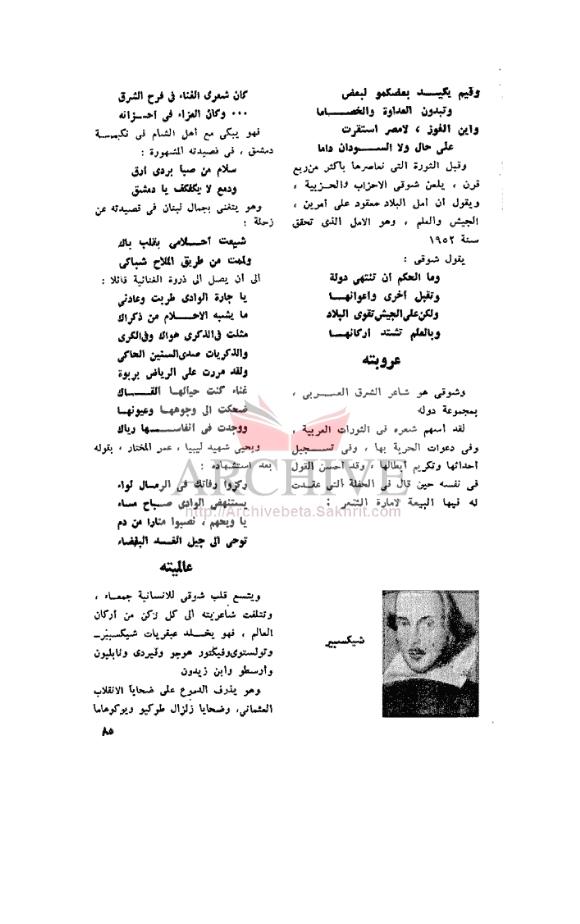 وفيم يكيد بعضكمو لبعض
وتبدون العداوة والخصاما
واين الفوز ، لامصر استقرت
على حال ولا السودان داما
وقبل الثورة التى نعاصرها بأكثر من ربع
قرن ، يلعن شوقى الاحزاب والحزبية ،
ويقول ان أمل البلاد معقود على أمرين ،
الجيش والعلم ، وهو الامل الذى تحقق
سنة ١٩٥٢
يقول شوقى :
وما الحكم ان تنتهى دولة
وتقبل أخرى واعوانها
ولكن على الجيش تقوى البلاد
وبالعلم تشتد أركانها
عروبته
وشوقى هو شاعر الشرق العربى ،
بمجموعة دوله
لقد أسهم شعره فى الثورات العربية ،
وفى دعوات الحرية بها ، وفى تسجيل
أحداثها وتكريم أبطالها ، وقد أحسن القول
فى نفسه حين قال فى الحفلة التى عقدت
له فيها البيعة لامارة الشعر :
شيكسبير
كان شعرى الغناء فى فرح الشرق
... وكان العزاء فى أحزانه
فهو يبكى مع أهل الشام فى نكبسة
دمشق ، فى قصيدته المشهورة :
سلام من صبا بردى أرق
ودمع لا يكفكف يا دمشق
وهو يتغنى بجمال لبنان فى قصيدته عن
زحلة :
شيعت أحلامى بقلب باك
ولمت من طريق الملاح شباكى
الى أن يصل الى ذروة الغنائية قائلا :
يا جارة الوادى طربت وعادنى
ما يشبه الاحلام من ذكراك
مثلت فى الذكرى هواك وفى الكرى
والذكريات صدى السنين الحاكى
ولقد مررت على الرياض بربوة
غناء كنت حيالها القاك
ضحكت الى وجوهها وعيونها
ووجدت فى أنفاسها رياك
ويحيى شهيد ليبيا ، عمر المختار ، بقوله
بعد استشهاده :
ركزوا رفاتك فى الرمال لواء
يستنهض الوادى صباح مساء
يا ويحهم ، نصبوا منارا من دم
توحى الى جيل الغد البغضاء
عالميته
ويتسع قلب شوقى للانسانية جمعاء ،
وتتلفت شاعريته الى كل ركن من أركان
العالم ، فهو يخلد عبقريات شيكسبير
وتولستوى وفيكتور هوجو وفيردى ونابليون
وأرسطو وابن زيدون
وهو يذرف الدموع على ضحايا الانقلاب
العثمانى، وضحايا زلزال طوكيو ويوكوهاما
٨٥
ARCHIVE
http://Archivebeta.Sakhrit.com